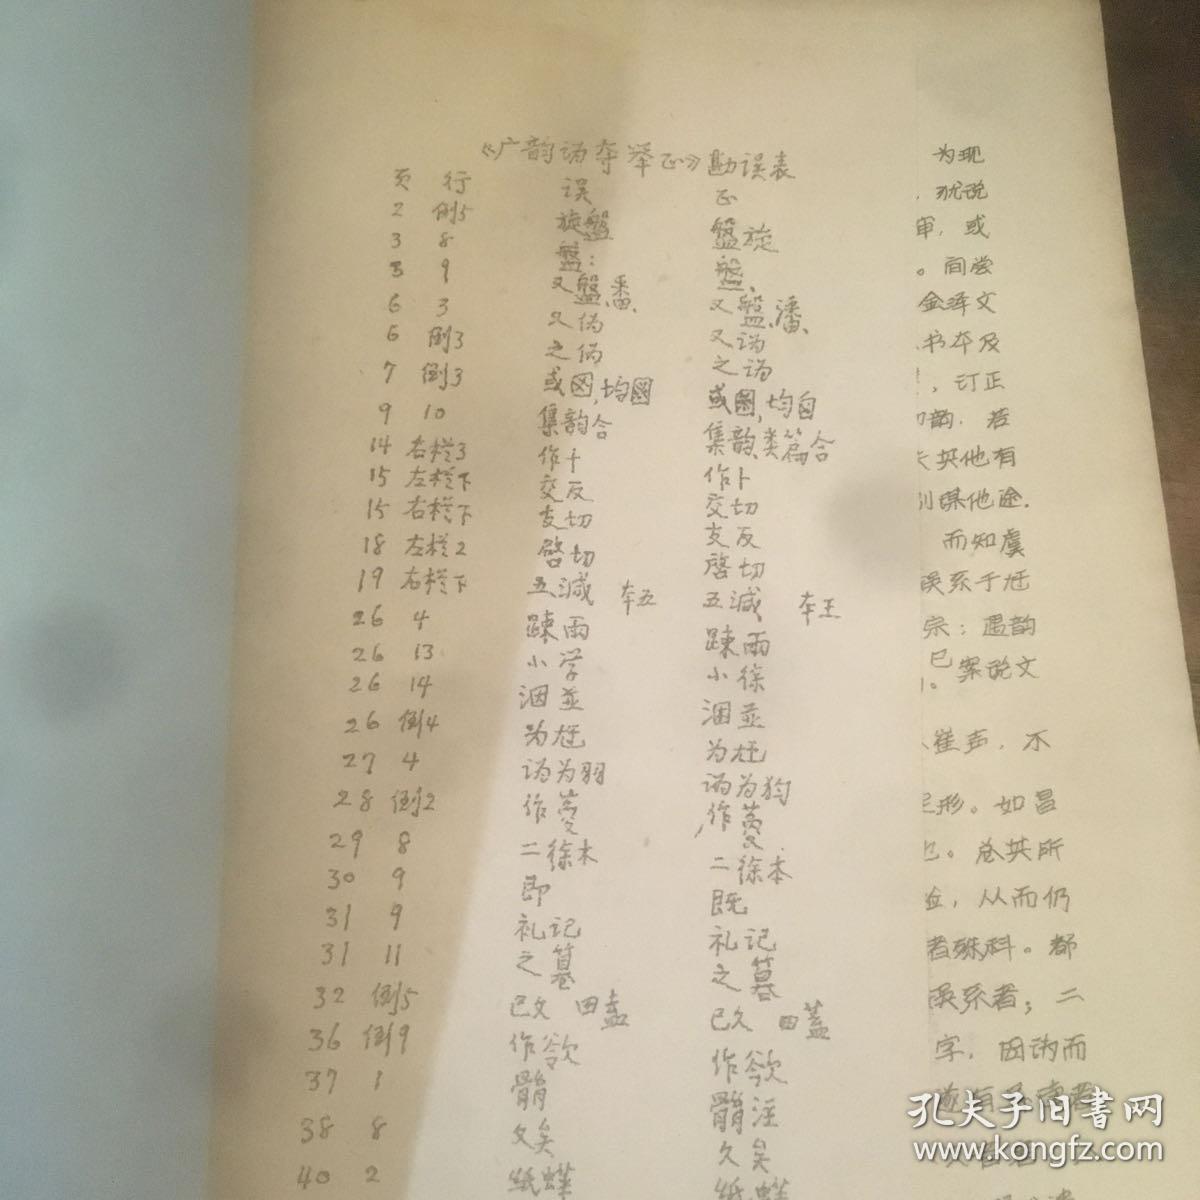 《广韵讹夺举正》勘误表
页 行 误 正
2 倒5 旋盤 盤旋
3 8 盤: 盤、
3 9 又盤、番、 又盤、潘、
6 3 又伪 又讹
6 倒3 之伪 之讹
7 倒3 或図,均図 或圖,均自
9 10 集韵合 集韵、类篇合
14 右栏3 作十 作卜
15 左栏下 交反 交切
15 右栏下 支切 支反
18 左栏2 啓切 啓切
19 右栏下 五減 本五 五減 本王
26 4 踈雨 踈雨
26 13 小学 小徐
26 14 涃並 涃並
26 倒4 为尪 为尪
27 4 讹为羽 讹为豿
28 倒2 作 作
29 8 二徐木 二徐本
30 9 即 既
31 9 礼记 礼记
31 11 之 之
32 倒5 已文 田盍 已久 田蓋
36 倒9 作 作
37 1 髇 髇注
38 8 文矣 久矣
40 2 紙 紙
为现
犹说
审,或
。间尝
金泽文
书本及
,订正
韵,若
其他有
别谋他途.
而知虞
误系于尪
宗;遇韵
已。案说文
崔声,不
形。如昌
也。总其所
,从而仍
者殊科。都
误系者;二
字,因讹而
孔夫子旧书网
www.kongfz.com